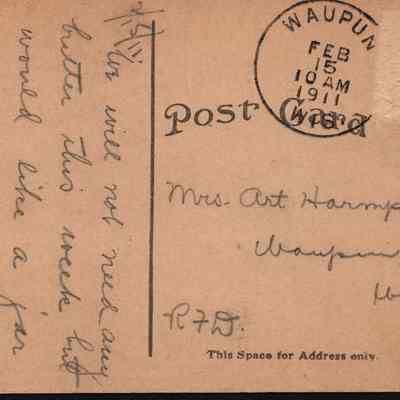 2/15/11
We will not need any
butter this week but
would like a jar
Post Card
WAUPUN
FEB
15
10 AM
1911
WIS.
Mrs. Art Harmp
Waupun
R.F.D.
This Space for Address only.